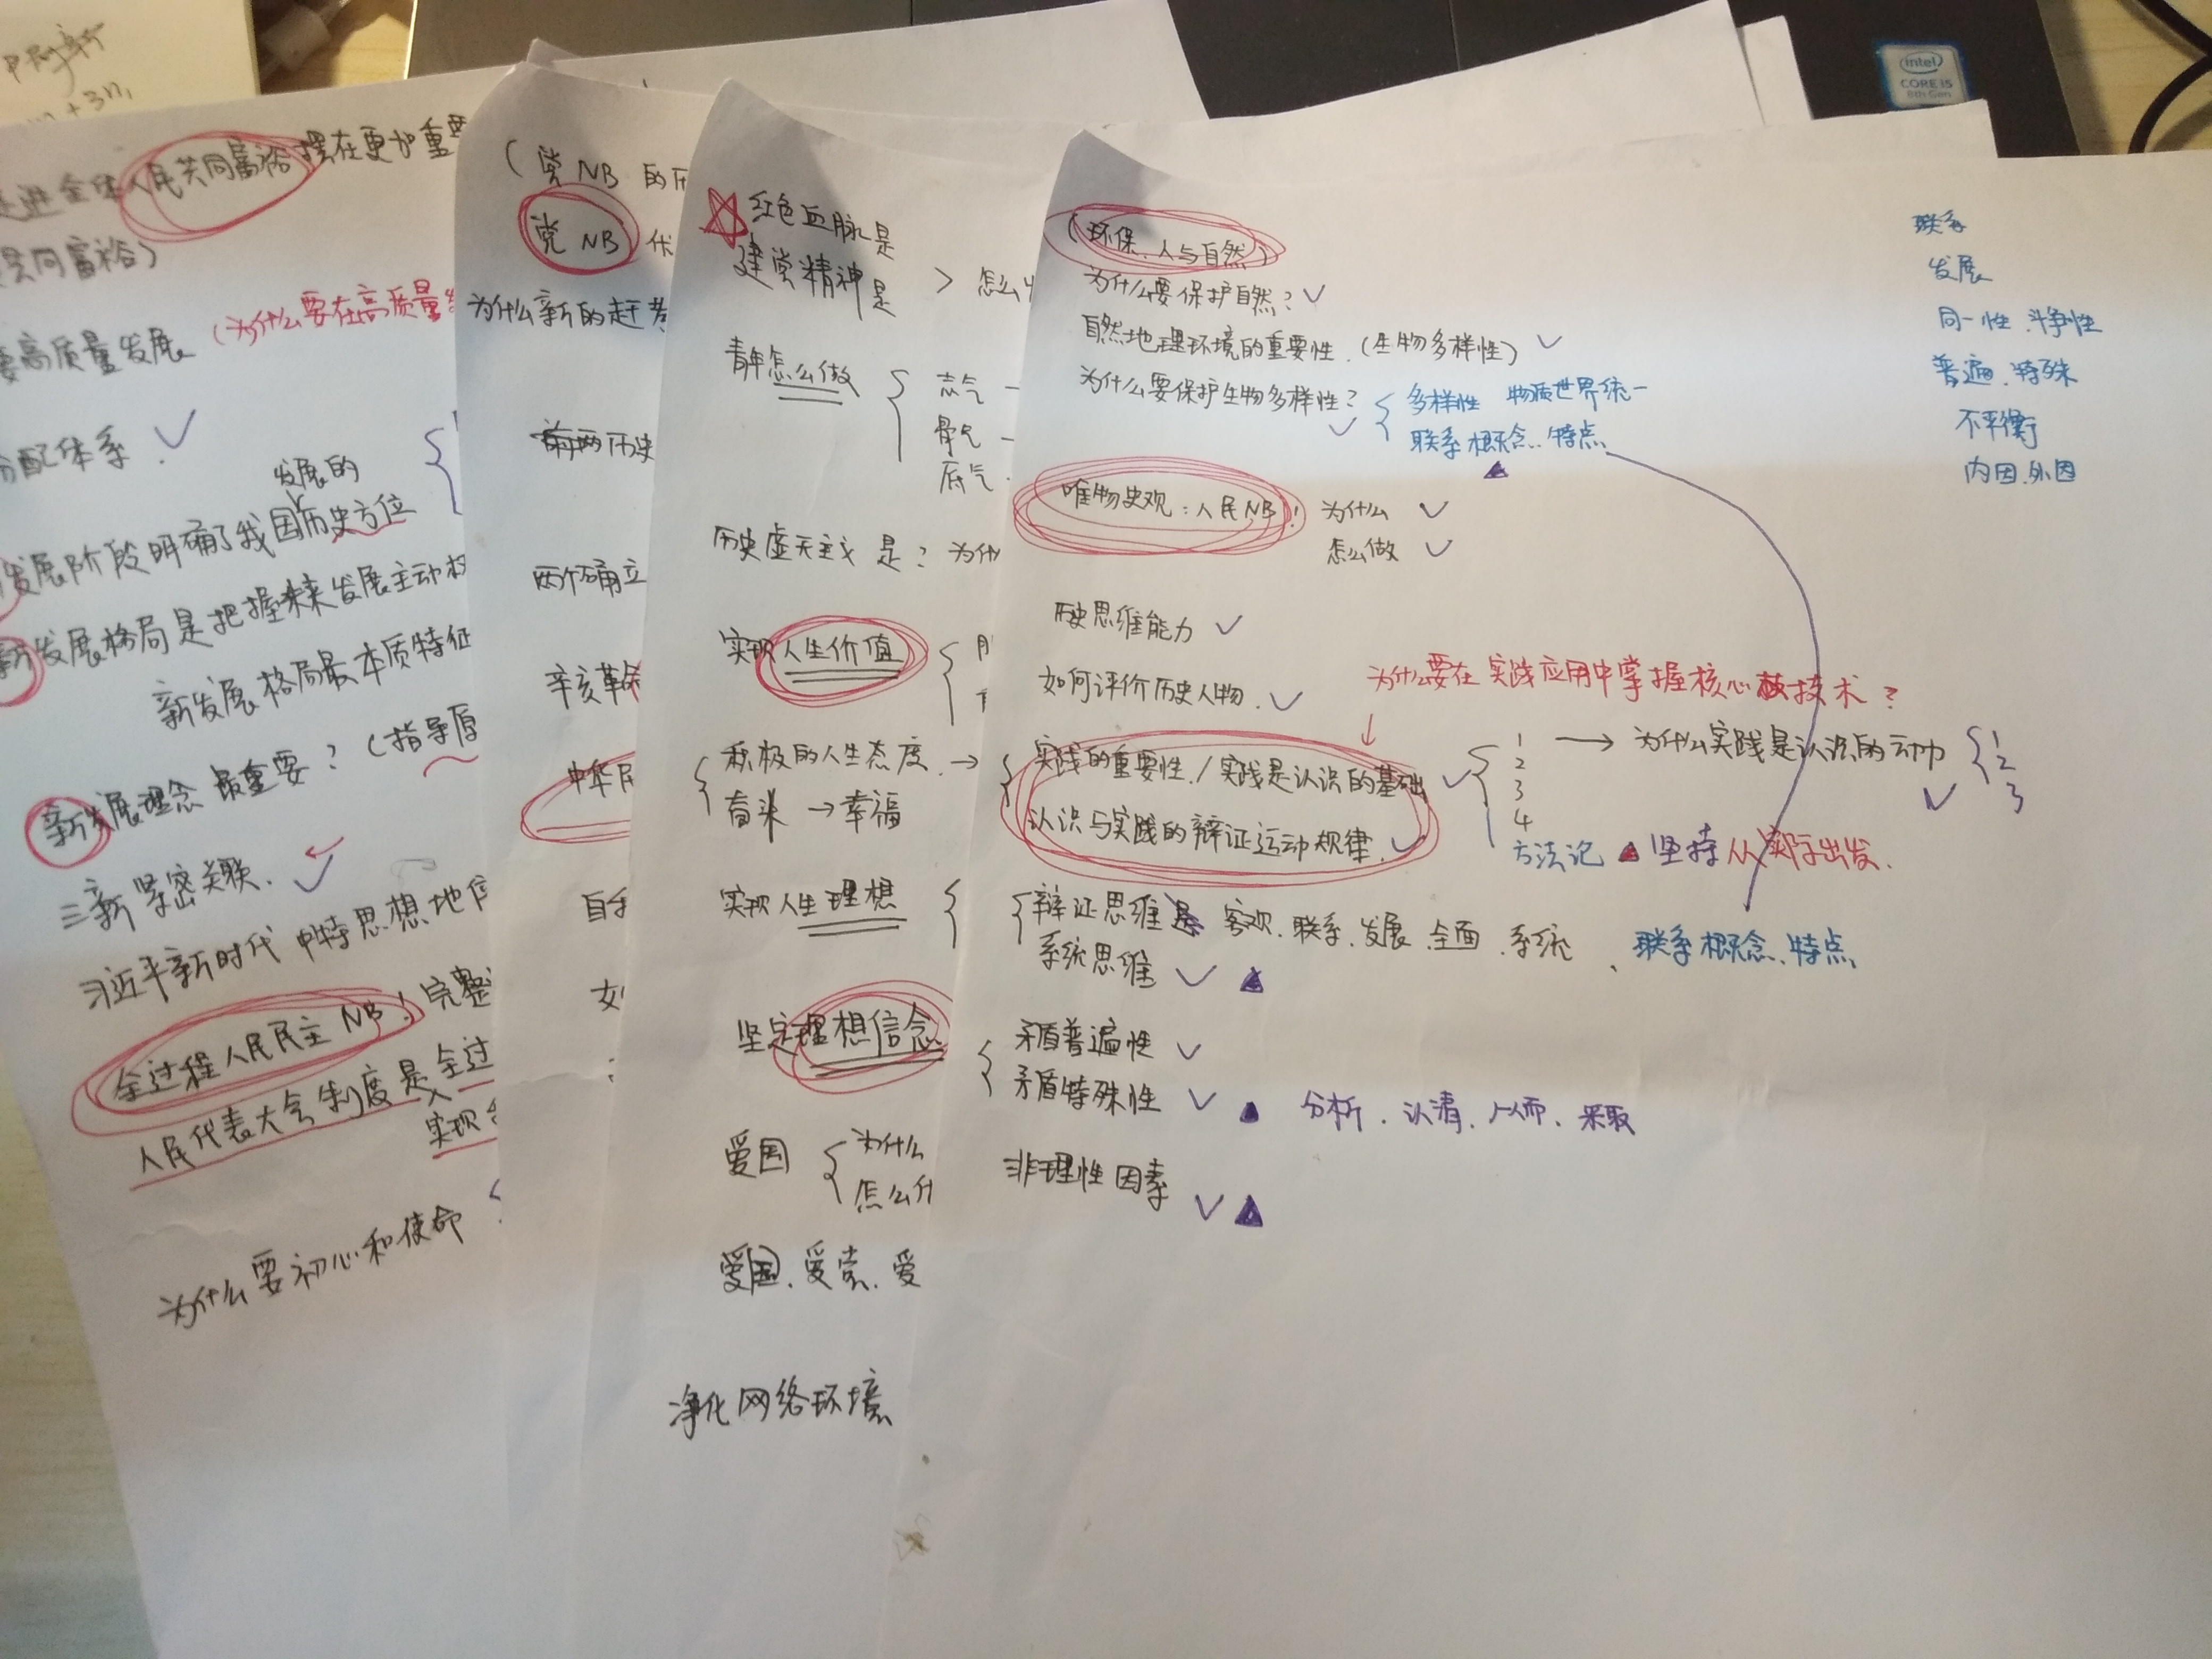 +3n,
intel
CORE i5
8th Gen
进全体人民共同富裕摆在更加重要
共同富裕)
要高质量发展 (为什么要在高质量发
分配体系
发展的
发展阶段明确了我国历史方位
新发展格局是把握未来发展主动权
新发展格局最本质特征
新发展理念最重要?(指导原
三新紧密关联.
习近平新时代中特思想地位
全过程人民民主NB!完整
人民代表大会制度是全过
实现
为什么要初心和使命
(党NB的历
党NB 优
为什么新的赶考
前两历史
两个确立
辛亥革命
中华民
自我
红色血脉是
建党精神是 > 怎么
青年怎么做
志气 —
骨气 —
底气
历史虚无主义是?为什
实现人生价值
积极的人生态度. →
奋斗 → 幸福
实现人生理想
坚定理想信念
爱国
为什么
怎么什
爱国.爱党.爱
净化网络环境
(环保.人与自然)
为什么要保护自然?
自然地理环境的重要性.(生物多样性)
为什么要保护生物多样性?
多样性 物质世界统一
联系概念.特点
唯物史观:人民NB! 为什么
怎么做
历史思维能力
如何评价历史人物.
为什么要在实践应用中掌握核心技术?
实践的重要性./实践是认识的基础
认识与实践的辩证运动规律.
1 → 为什么实践是认识的动力 1
2 2
3 3
4
方法论 ▲坚持从实际出发.
辩证思维 客观.联系.发展.全面.系统 、联系概念、特点
系统思维
矛盾普遍性
矛盾特殊性 ▲ 分析.认清.从而、采取
非理性因素
联系
发展
同一性.斗争性
普遍.特殊
不平衡
内因.外因